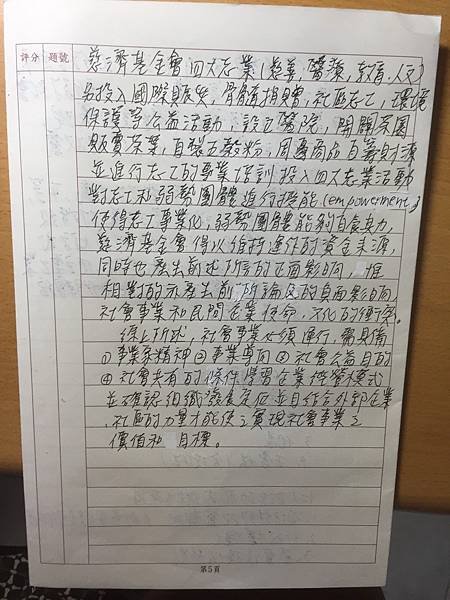 評分 題號
慈濟基金會四大志業(慈善,醫療,教育,人文)
投入國際賑災,骨髓捐贈,社區志工,環境
保護等公益活動,設立醫院,開闢茶園
販賣茶葉,自製五穀粉,周邊商品自籌財源
並進行志工的專業培訓投入四大志業活動
對志工和弱勢團體進行授能(empowerment)
使得志工專業化,弱勢團體能夠自食其力,
慈濟基金會得以維持運作的資金來源,
同時也產生前述所言的正面影響,惟
相對的亦產生前所論及的負面影響,
社會事業和民間企業使命,文化的衝突。
綜上所述,社會事業必須運行,需具備
①事業家精神②事業導向③社會公益目的
④社會共有的條件,學習企業經營模式
並確認組織 定位並且結合外部企業
,社區的力量才能使之實現社會事業之
價值和目標。
第5頁